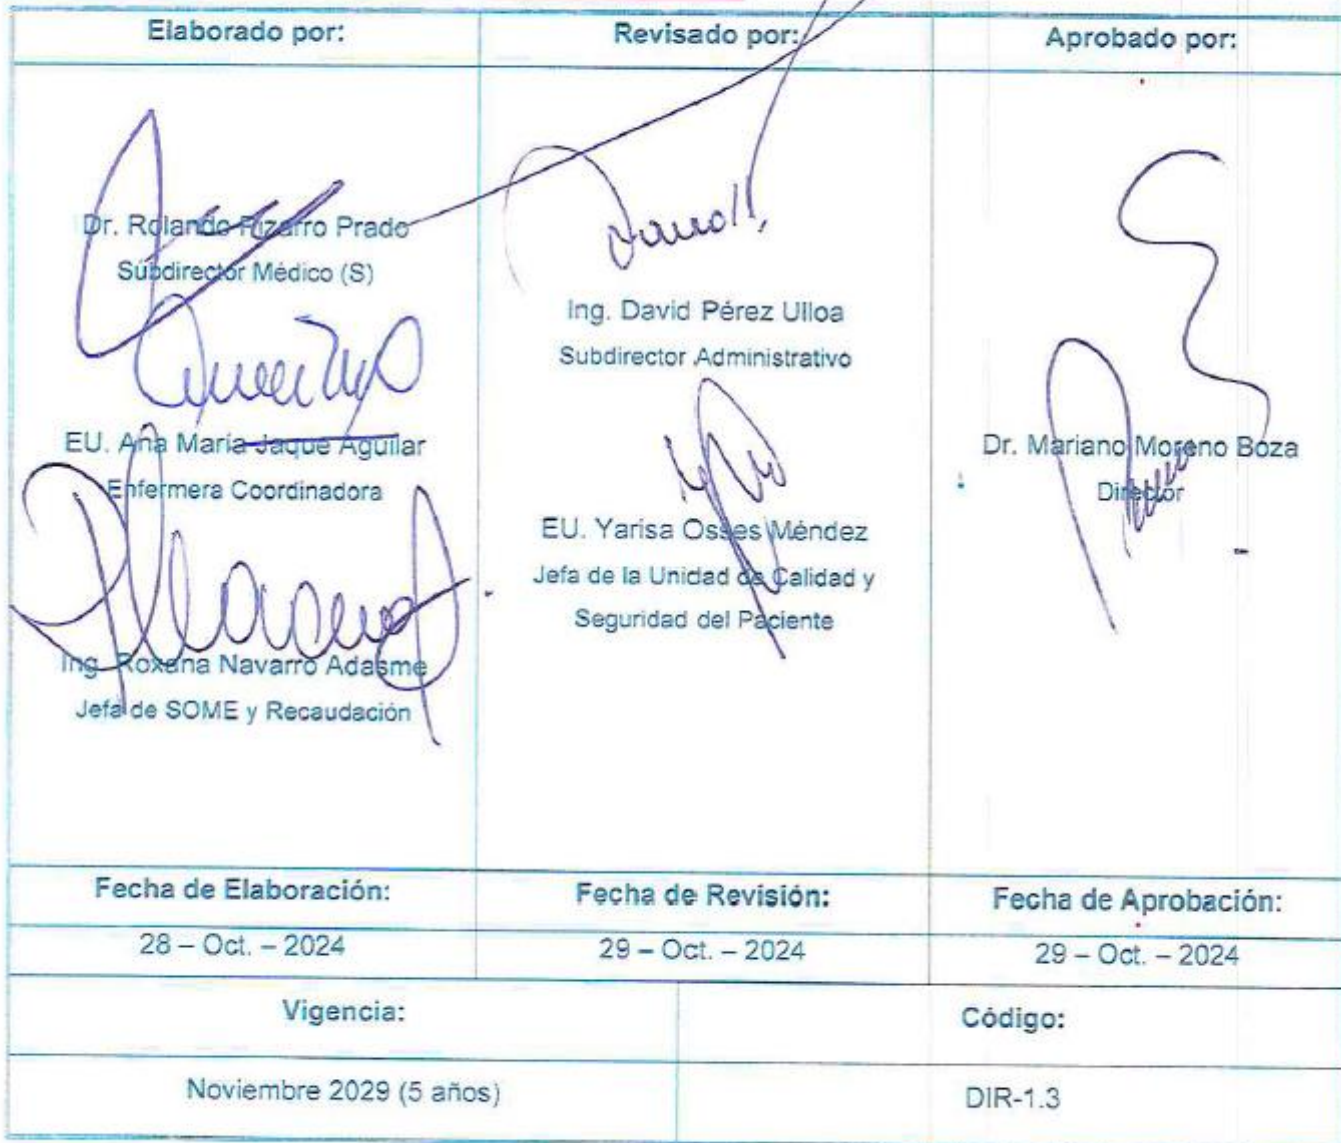 Elaborado por:
Revisado por:
Aprobado por:
Dr. Rolando Pizarro Prado
Subdirector Médico (S)
EU. Ana María Jaque Aguilar
Enfermera Coordinadora
Ing. Roxana Navarro Adasme
Jefa de SOME y Recaudación
Ing. David Pérez Ulloa
Subdirector Administrativo
EU. Yarisa Osses Méndez
Jefa de la Unidad de Calidad y
Seguridad del Paciente
Dr. Mariano Moreno Boza
Director
Fecha de Elaboración:
Fecha de Revisión:
Fecha de Aprobación:
28 – Oct. – 2024
29 – Oct. – 2024
29 – Oct. – 2024
Vigencia:
Código:
Noviembre 2029 (5 años)
DIR-1.3